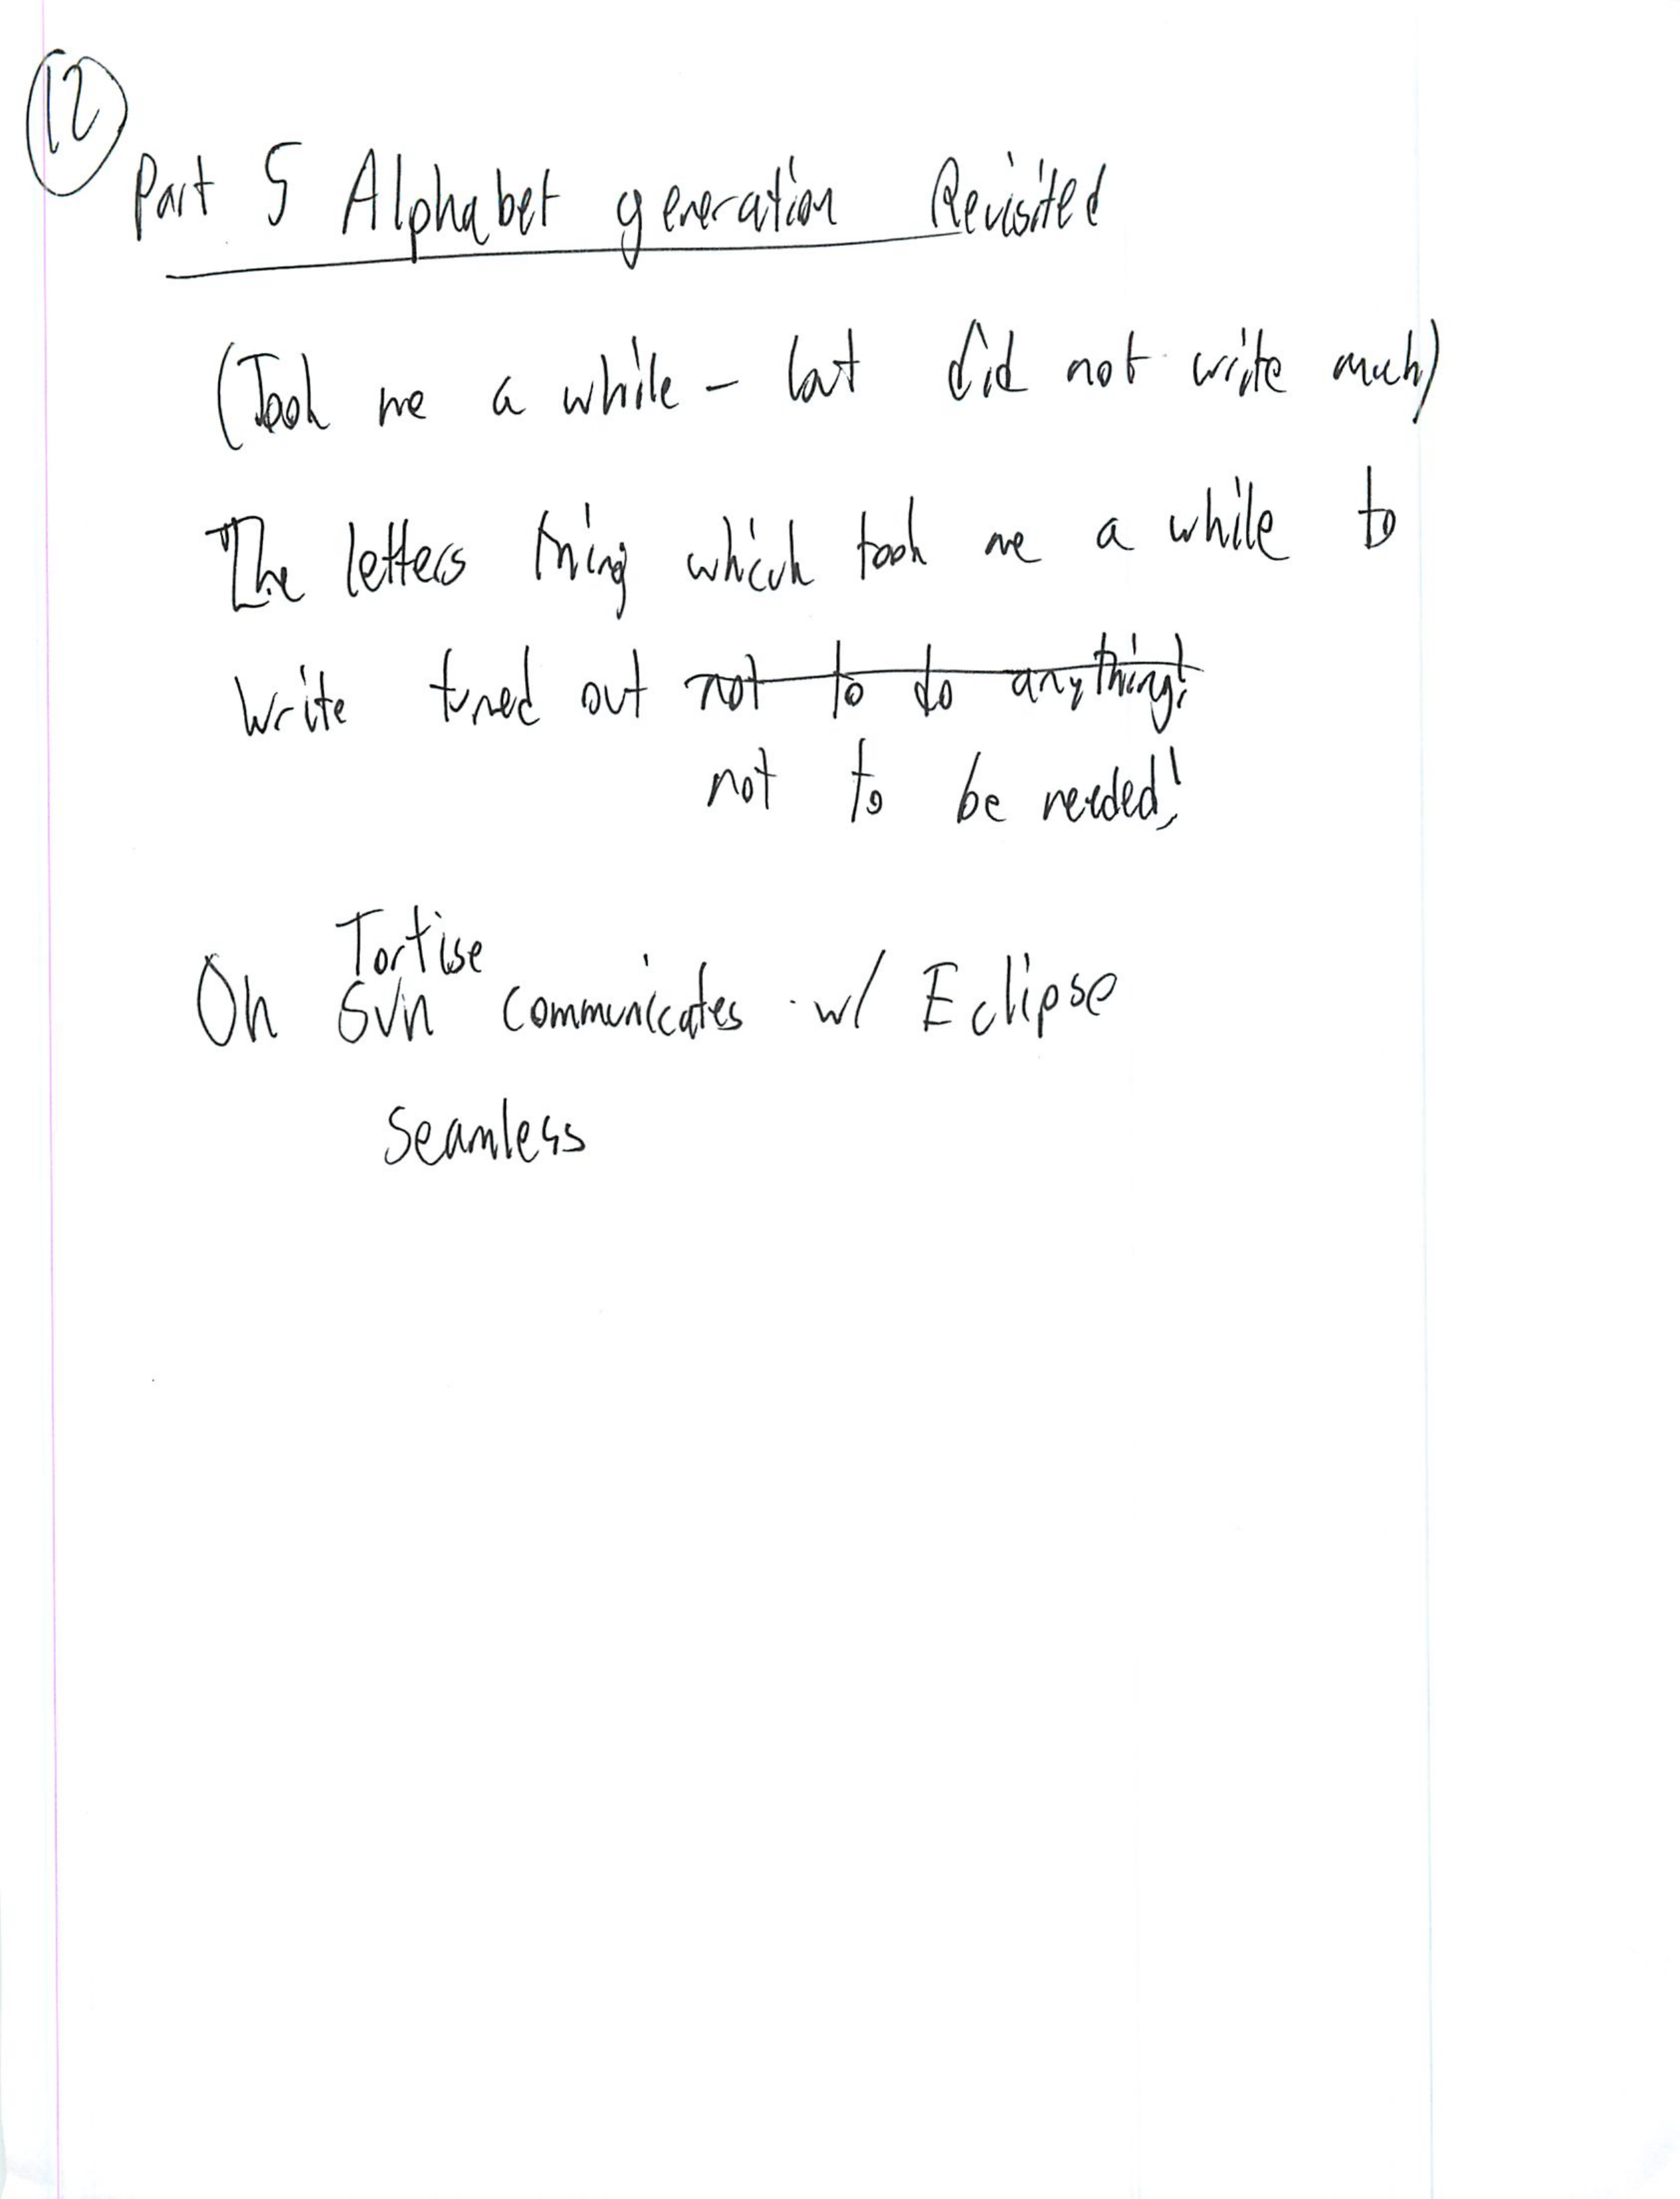 12
Part 5 Alphabet generation Revisited
(Took me a while - but did not write much)
The letters thing which took me a while to
write tuned out not to do anything!
not to be needed!
Tortise
Oh SVN communicates w/ Eclipse
seamless